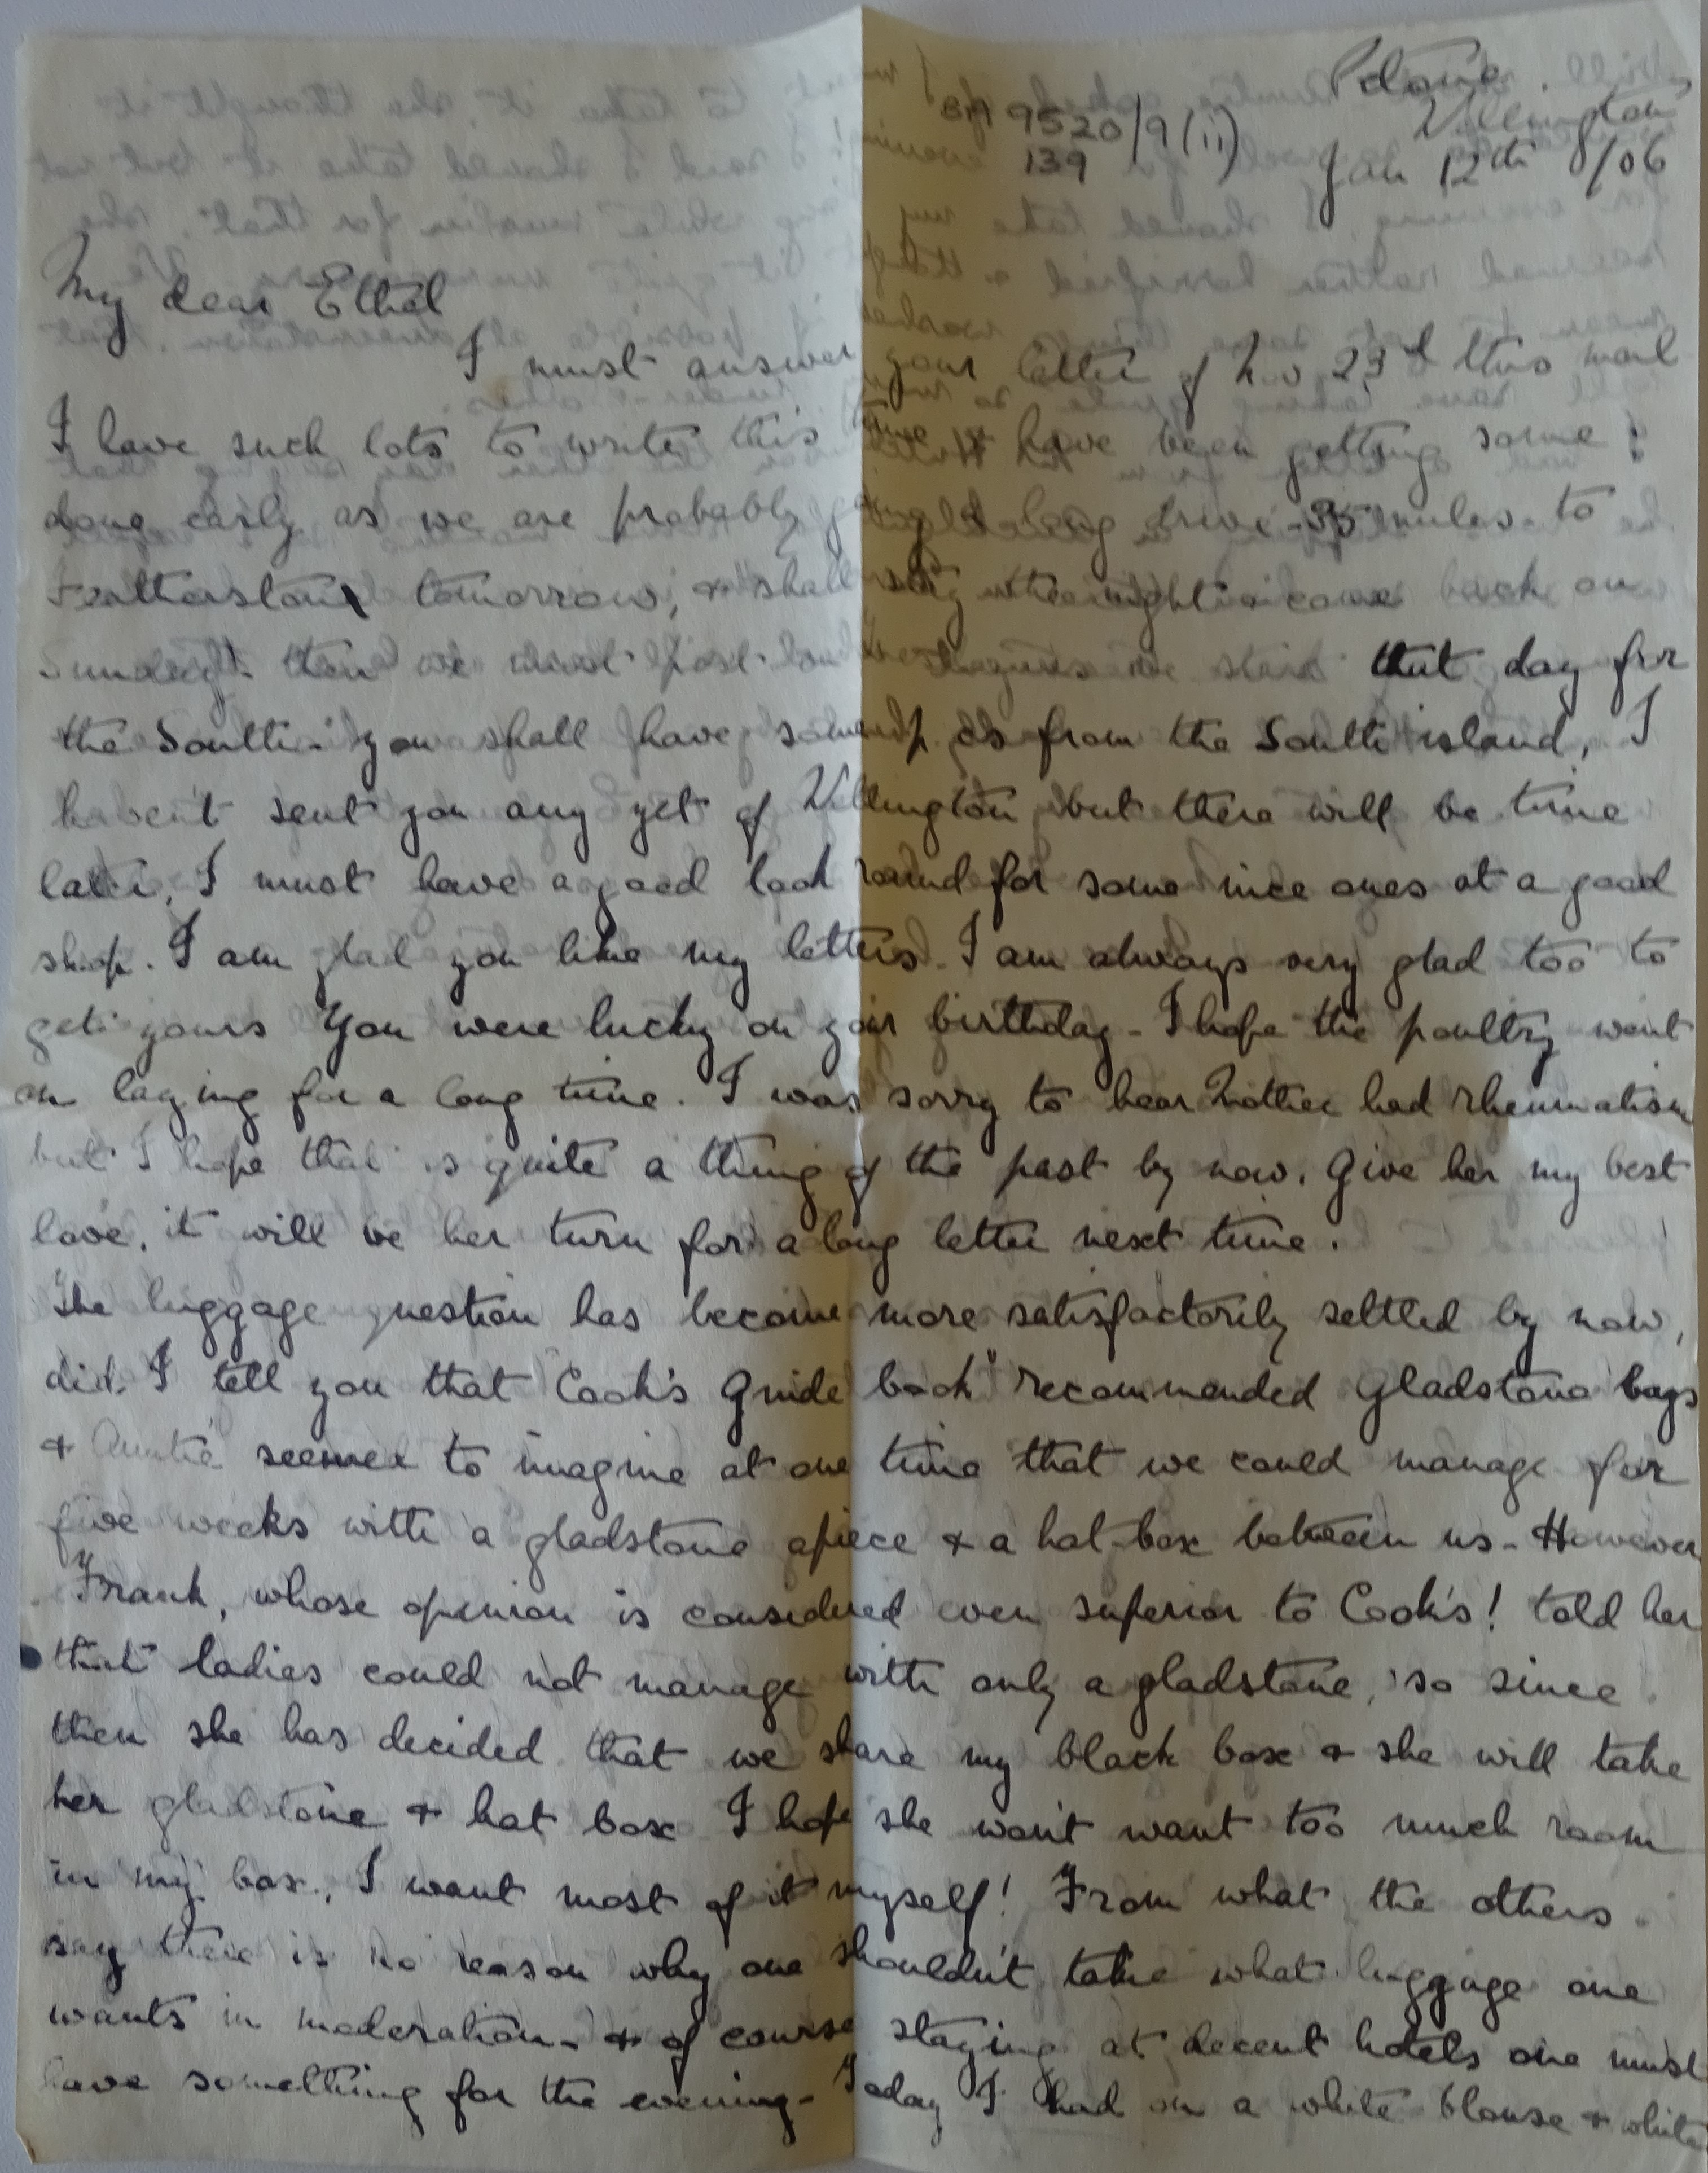 Wellington
BA 9520/9(ii)
139
Jan 12th /06
My dear Ethel
I must answer your letter of Nov 23rd this mail
I have such lots to write this time & have been getting some
done early as we are probably going a long drive - 35 miles to
Featherstone tomorrow, & shall stay the night & come back on
Sunday. then we must post our letters as we start that day for
the South - you shall have some p. cs from the South island, I
haven't sent you any yet of Wellington but there will be time
later, I must have a good look round for some nice ones at a good
shop. I am glad you like my letters. I am always very glad too to
get yours You were lucky on your birthday - I hope the poultry went
on laying for a long time. I was sorry to hear Mother had rheumatism
but I hope that is quite a thing of the past by now. Give her my best
love, it will be her turn for a long letter next time.
The luggage question has become more satisfactorily settled by now,
did I tell you that Cook's Guide book" recommended Gladstone bags
& Auntie seemed to imagine at one time that we could manage for
five weeks with a gladstone apiece & a hat-box between us - However
Frank, whose opinion is considered even superior to Cook's! told her
that ladies could not manage with only a gladstone, so since
then she has decided that we share my black box & she will take
her gladstone & hat box I hope she won't want too much room
in my box, I want most of it myself! From what the others
say there is no reason why one shouldn't take what luggage one
wants in moderation - & of course staying at decent hotels one must
have something for the evening - Today I had on a white blouse & white